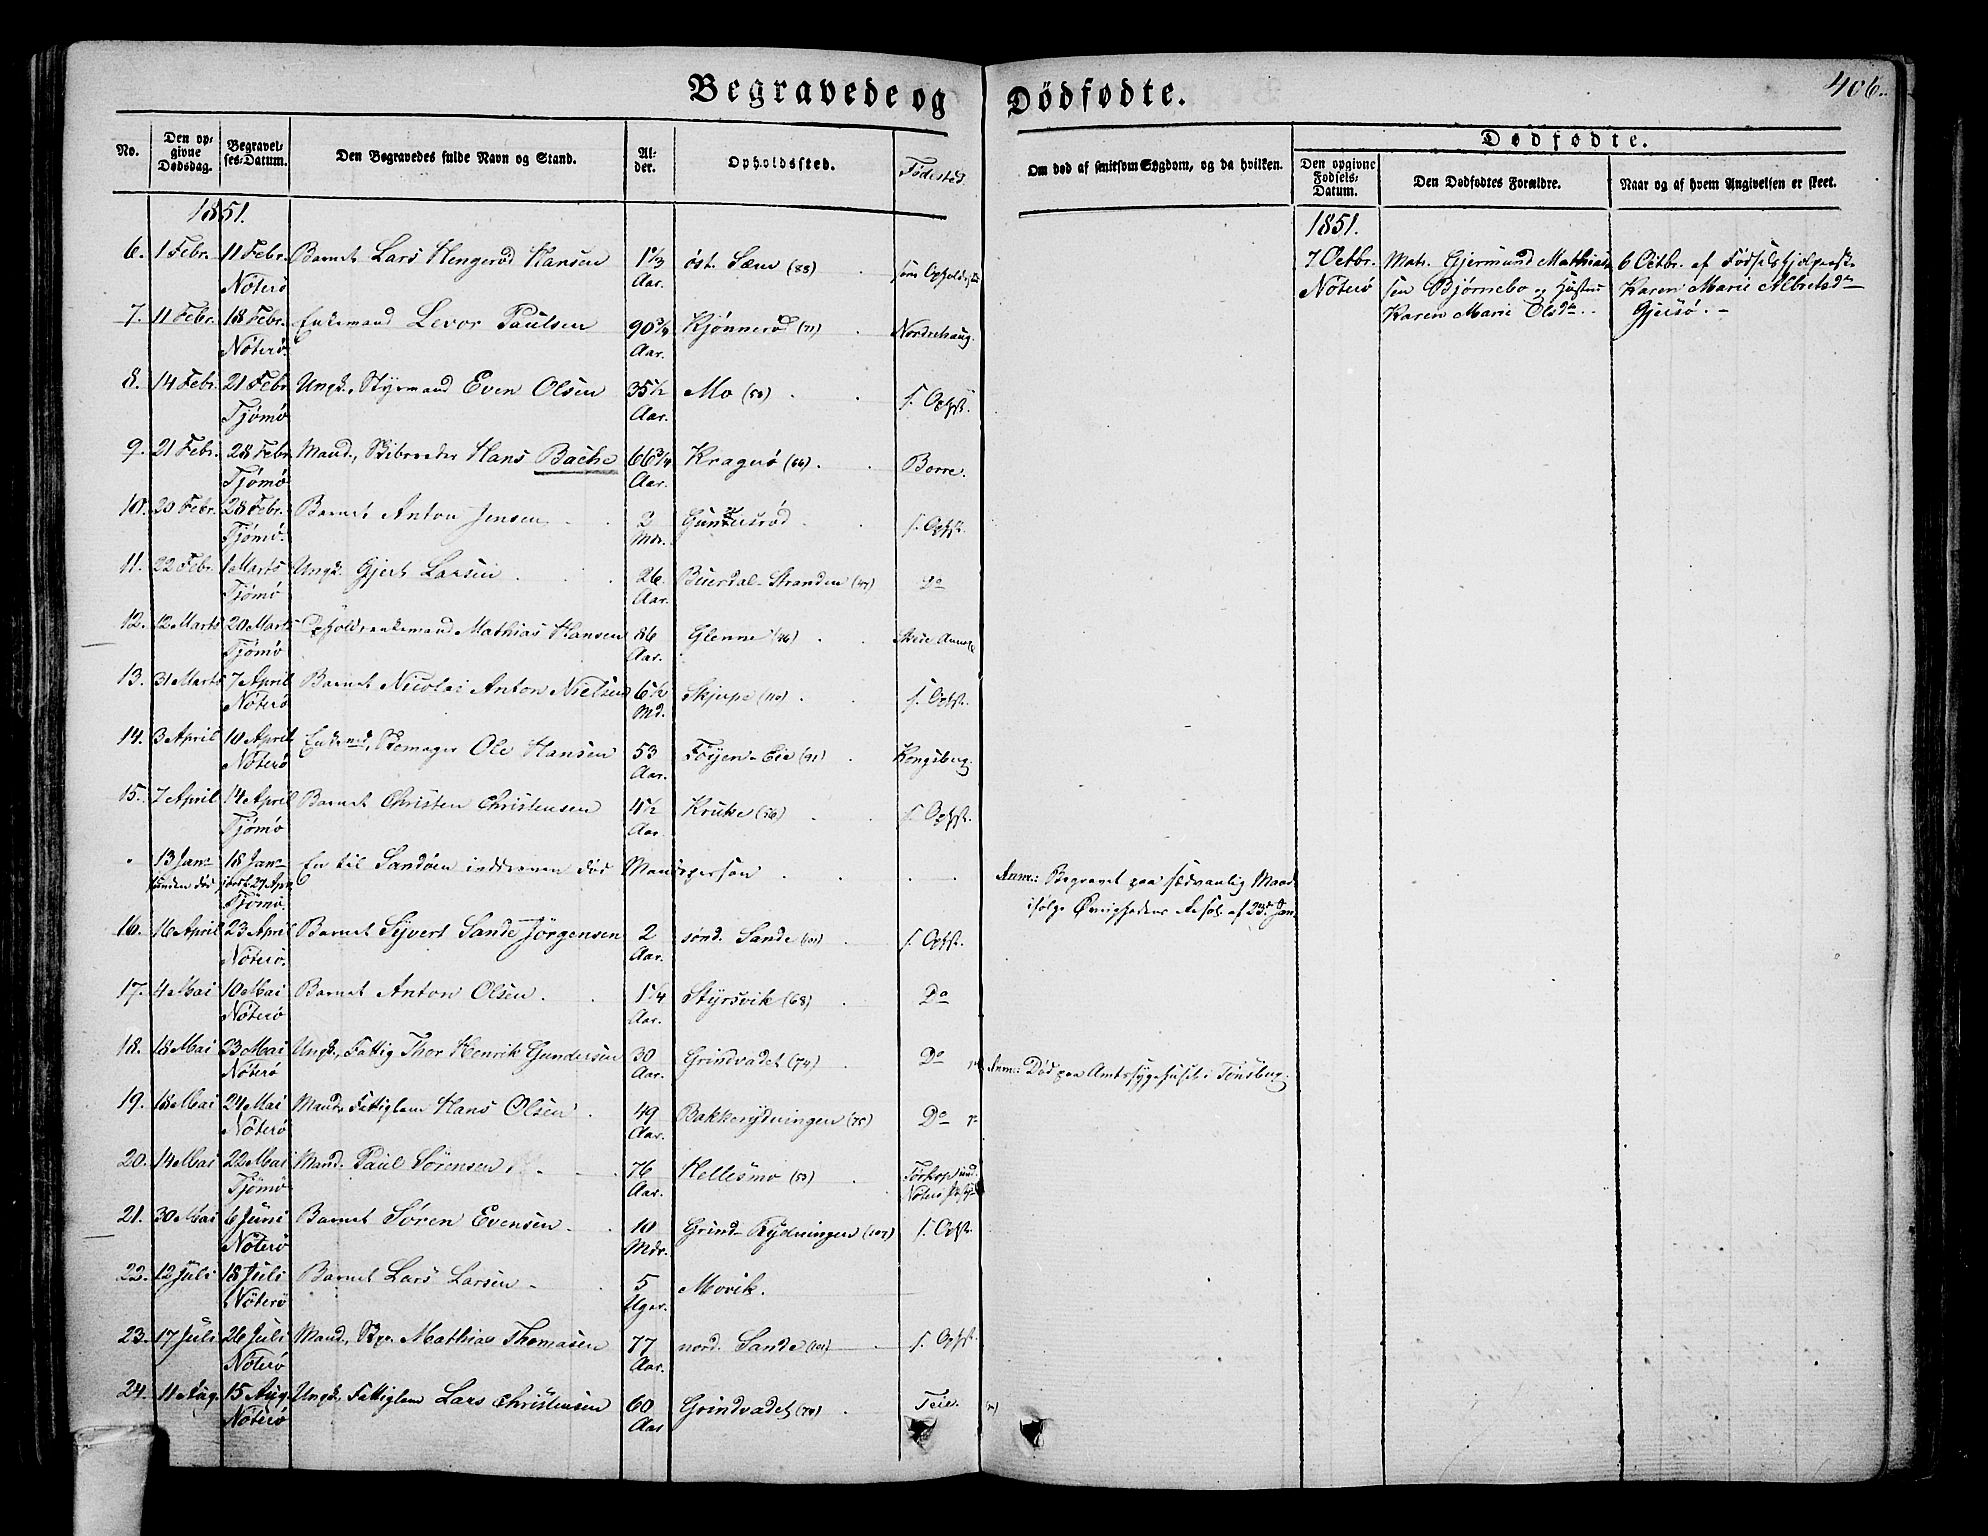 Begravede og Dødfødte.
406.
No.
Den opgivne Dødsdag.
Begravelses-Datum.
Den Begravedes fulde Navn og Stand.
Alder.
Opholdssted.
Fødested.
Om død af smitsom Sygdom, og da hvilken.
Dødfødte.
Den opgivne Fødsels-Datum.
Den Dødfødtes Forældre.
Naar og af hvem Angivelsen er skeet.
1851.
6. 1 Febr. 11 Febr. Barnet Lars Hengerød Hansen 1 1/3 øst. Sæm (88)
Nöterö Aar.
7. 11 Febr. 18 Febr. Enkemand Levor Paulsen 90 3/4 Kjønnerød (71) Norderhaug.
Nöterö. Aar.
8. 14 Febr. 21 Febr. Ungk. Styrmand Even Olsen 35 1/2 Mo (50) f. Ophst.
Tjømø Aar.
9. 21 Febr. 28 Febr. Mand, Skibsreder Hans Bache 66 3/4 Kragerö (66) Borre.
Tjømø Aar.
10. 20 Febr. 28 Febr. Barnet Anton Jensen f. Opst.
Tjømø. Mdr.
11. 22 Febr. 1 Marts Ungk. Gjert Larsen 26 Buerdal-Stranden (47) Do
Tjømø Aar.
12. 12 Marts 20 Marts Opholdsenkemand Mathias Hansen 86 Glenne (46)
Tjømø Aar.
13. 31 Marts 7 April Barnet Nicolai Anton Nielsen 6 1/2 Skjerpe (110) f. Opst.
Nöterö Md.
14. 3 April 10 April Enkemd, Skomager Ole Hansen 53 Föyen-Eie (91) Kongsberg.
Nöterö Aar.
15. 7 April 14 April Barnet Christen Christensen 4 1/2 Kruke (56) f. Opst.
Tjømø Aar.
13 Jan. 18 Jan. En til Sandöen inddreven død Mandsperson
funden død
Tjømø.
Anm: Begravet paa sædvanlig Maade
ifølge Øvrighedens Resol. af 23de Jan.
16. 16 April 23 April Barnet Syvert Sande Jörgensen 2 sönd. Sande (101) f. Opst.
Nöterö. Aar.
17. 4 Mai 10 Mai Barnet Anton Olsen. 1 1/4 Styrsvik (68) Do
Nöterö Aar.
18. 18 Mai 23 Mai Ungk. Fattig Thor Henrik Gundersen 30 Grindvadet (74) Do Anm: Død paa Amtssygehuset i Tönsberg.
Nöterö Aar.
19. 18 Mai 24 Mai Mand, Fattiglem Hans Olsen 49 Bakkerydningen (75) Do
Nöterö Aar.
20. 14 Mai 22 Mai Mand. Paul Sörensen 76 Hellesmo (50)
Tjømø Aar.
21. 30 Mai 6 Juni Barnet Sören Evensen 10 Grind-Rydningen (107) f. Opst.
Nöterö Mdr.
22. 12 Juli 18 Juli Barnet Lars Larsen 5 Movik.
Nöterö Uger.
23. 17 Juli 26 Juli Mand, Mathias Thomasen 77 nord. Sande (101) f. Opst.
Nöterö Aar.
24. 11 Aug. 15 Aug. Ungk. Fattiglem Lars Christensen 60 Grindvadet (74) Teie.
Nöterö Aar
1851.
7 Octbr. Mat. Gjermund Mathias- 6 Octbr. af Fødselshjelperske
Nöterö sen Bjørnebo og Hustru Karen Marie Albretsdr
Karen Marie Olsdr. Gjersö.